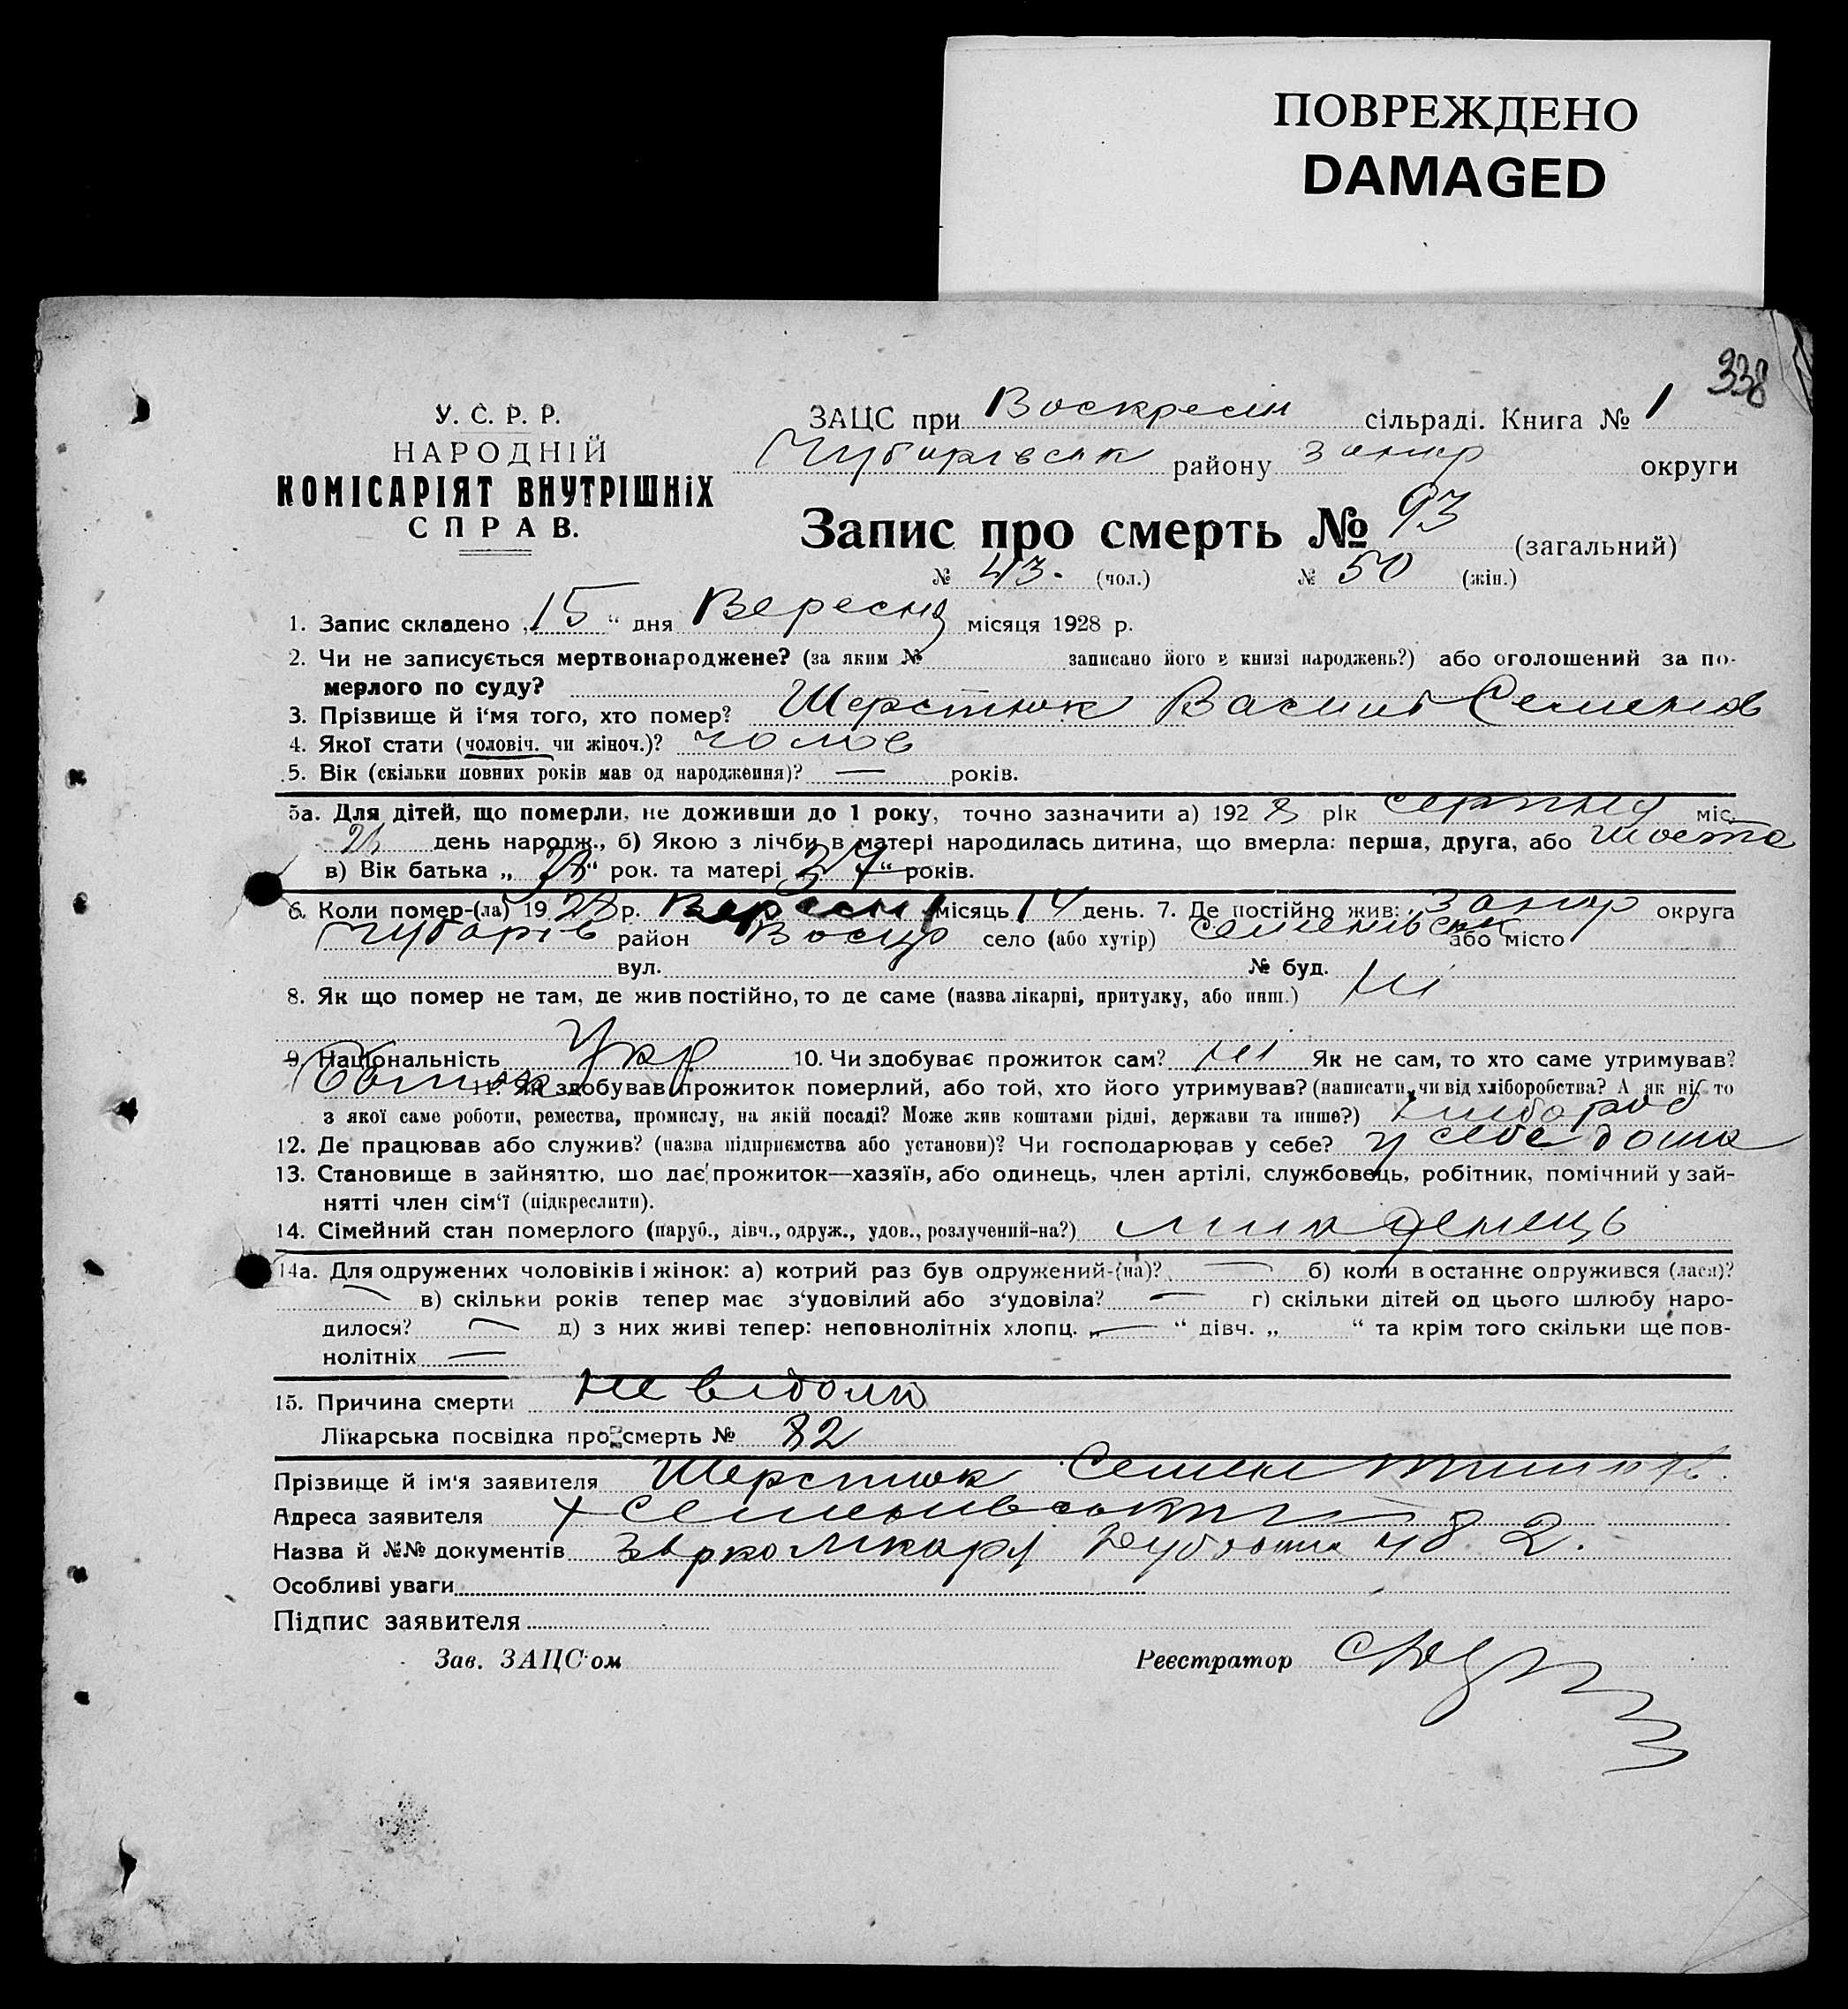 ПОВРЕЖДЕНО
DAMAGED
338
У. С. Р. Р.
НАРОДНІЙ
КОМІСАРІЯТ ВНУТРІШНІХ
СПРАВ.
ЗАЦС при Воскресін сільраді. Книга № 1
Чубарівськ району Запор округи
Запис про смерть № 93 (загальний)
№ 43. (чол.) № 50 (жін.)
1. Запис складено „15“ дня Вересня місяця 1928 р.
2. Чи не записується мертвонароджене? (за яким № записано його в книзі народжень?) або оголошений за по-
мерлого по суду?
3. Прізвище й і'мя того, хто помер? Шерстюк Василь Семенов
4. Якої стати (чоловіч. чи жіноч.)? чолов
5. Вік (скільки повних років мав од народження)? — років.
5а. Для дітей, що померли, не доживши до 1 року, точно зазначити а) 1928 рік серпня міс.
день народж., б) Якою з лічби в матері народилась дитина, що вмерла: перша, друга, або шоста
в) Вік батька „ “ рок. та матері „37“ років.
6. Коли помер-(ла) 1928 р. Вересня місяць 14 день. 7. Де постійно жив: Запор округа
Чубарів район Воскр село (або хутір) Семенівськ або місто
вул. № буд.
8. Як що помер не там, де жив постійно, то де саме (назва лікарні, притулку, або инш.) Ні
9. Національність Укр 10. Чи здобуває прожиток сам? Ні Як не сам, то хто саме утримував?
11. Як здобував прожиток померлий, або той, хто його утримував? (написати, чи від хліборобства? А як ні, то
з якої саме роботи, ремества, промислу, на якій посаді? Може жив коштами рідні, держави та инше?) хлібороб
12. Де працював або служив? (назва підприємства або установи)? Чи господарював у себе? у себе дома
13. Становище в зайняттю, шо дає прожиток—хазяїн, або одинець, член артілі, службовець, робітник, помічний у зай-
нятті член сім'ї (підкреслити).
14. Сімейний стан померлого (паруб., дівч., одруж., удов., розлучений-на?) младенець
14а. Для одружених чоловіків і жінок: а) котрий раз був одружений-(на)? — б) коли в останнє одружився (лася)?
— в) скільки років тепер має з'удовілий або з'удовіла? — г) скільки дітей од цього шлюбу наро-
дилося? — д) з них живі тепер: неповнолітніх хлопц. „—“ дівч. „ “ та крім того скільки ще пов-
нолітніх —
15. Причина смерти Невідома
Лікарська посвідка про смерть № 82
Прізвище й ім'я заявителя Шерстюк Семен
Адреса заявителя х Семенівський
Назва й №№ документів 82.
Особливі уваги
Підпис заявителя
Зав. ЗАЦС'ом Реєстратор